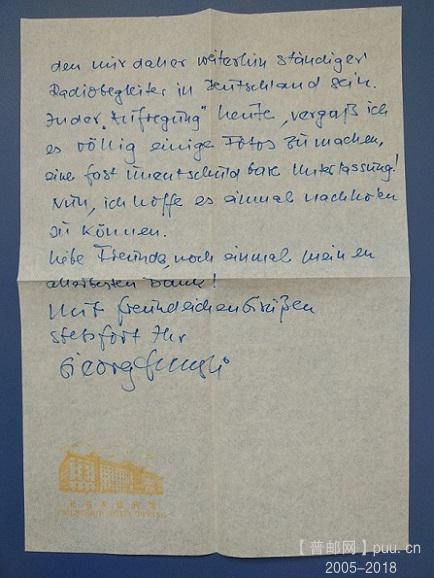 den mir daher weiterhin ständiger
Radiobegleiter in Deutschland sein.
In der „Aufregung" heute, vergaß ich
es völlig einige Fotos zu machen,
eine fast unentschuldbare Unterlassung!
Nun, ich hoffe es einmal nachholen
zu können.
Liebe Freunde, noch einmal meinen
allerbesten Dank!
Mit freundlichen Grüßen
stets fort Ihr
Georg
【普邮网】puu.cn
2005-2018